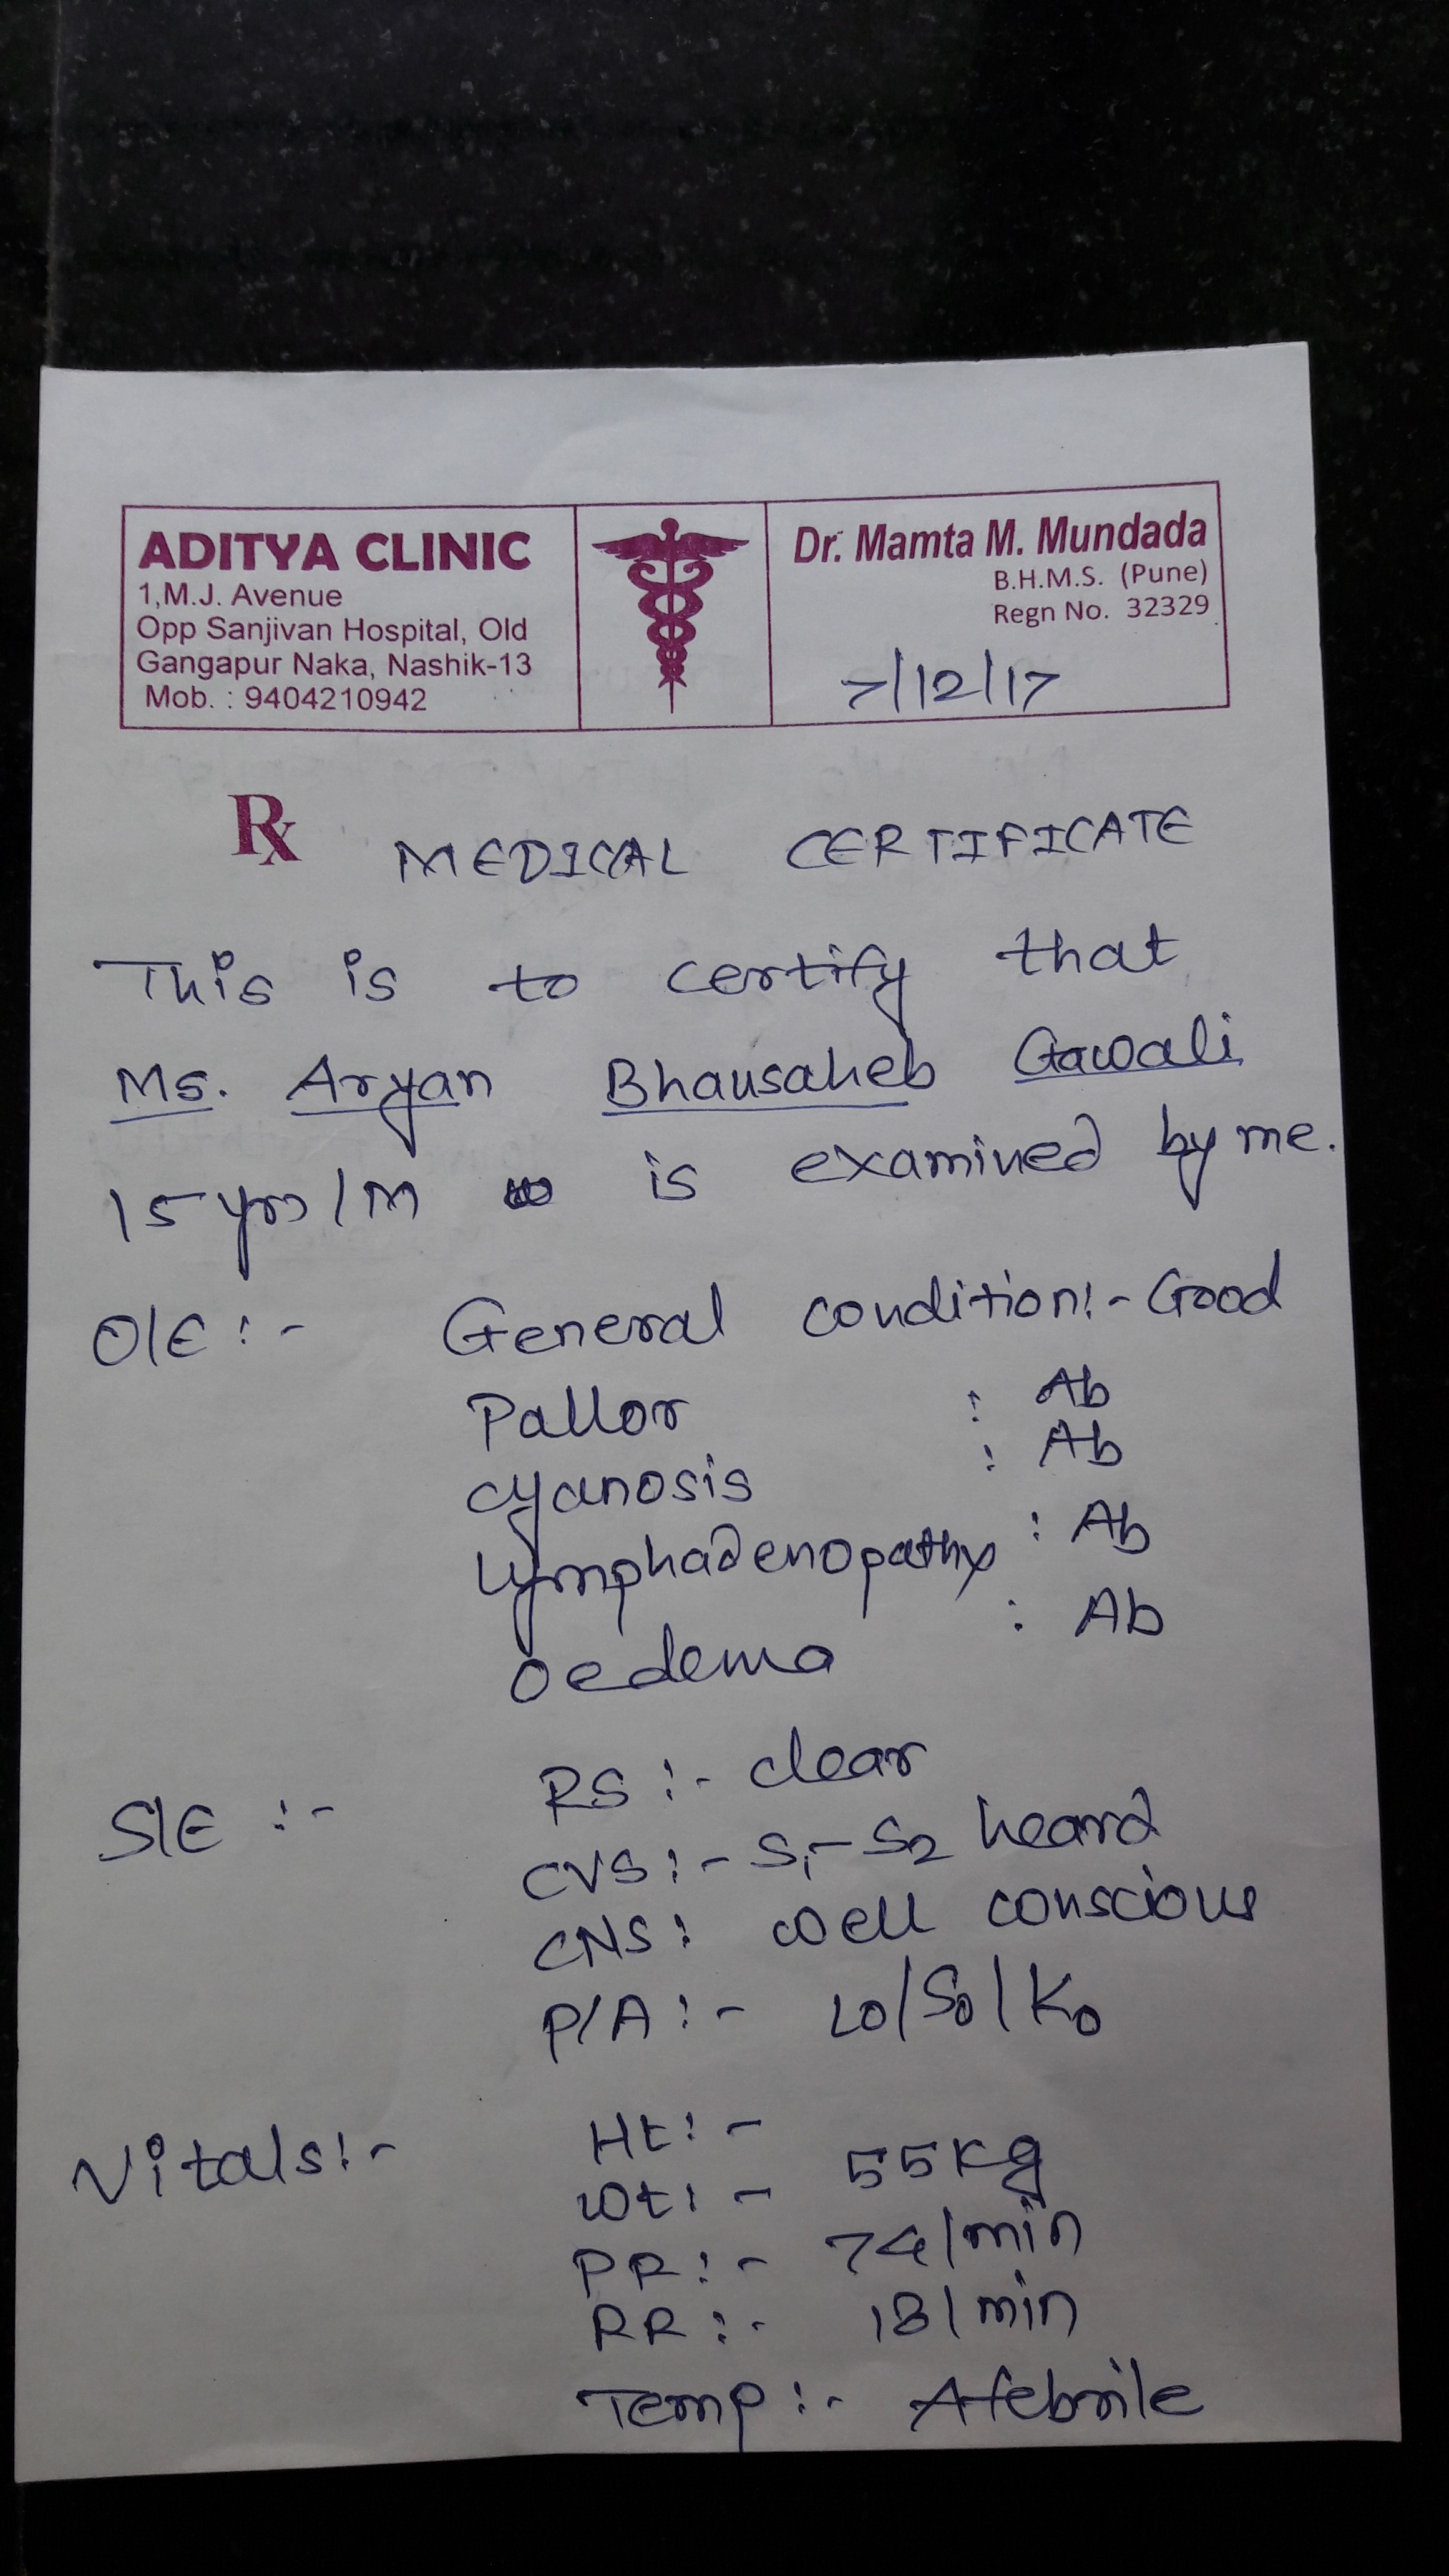 ADITYA CLINIC
1,M.J. Avenue
Opp Sanjivan Hospital, Old
Gangapur Naka, Nashik-13
Mob. : 9404210942
Dr. Mamta M. Mundada
B.H.M.S. (Pune)
Regn No. 32329
7/12/17
Rx MEDICAL CERTIFICATE
This is to certify that
Ms. Aryan Bhausaheb Gawali
15 yrs/M is examined by me.
O/E :- General condition:- Good
Pallor : Ab
cyanosis : Ab
Lymphadenopathy : Ab
oedema : Ab
S/E :- RS :- clear
CVS :- S1-S2 heard
CNS : well conscious
P/A :- Lo/So/Ko
Vitals:- Ht: -
Wt: - 55kg
PR :- 74/min
RR :- 18/min
Temp :- Afebrile